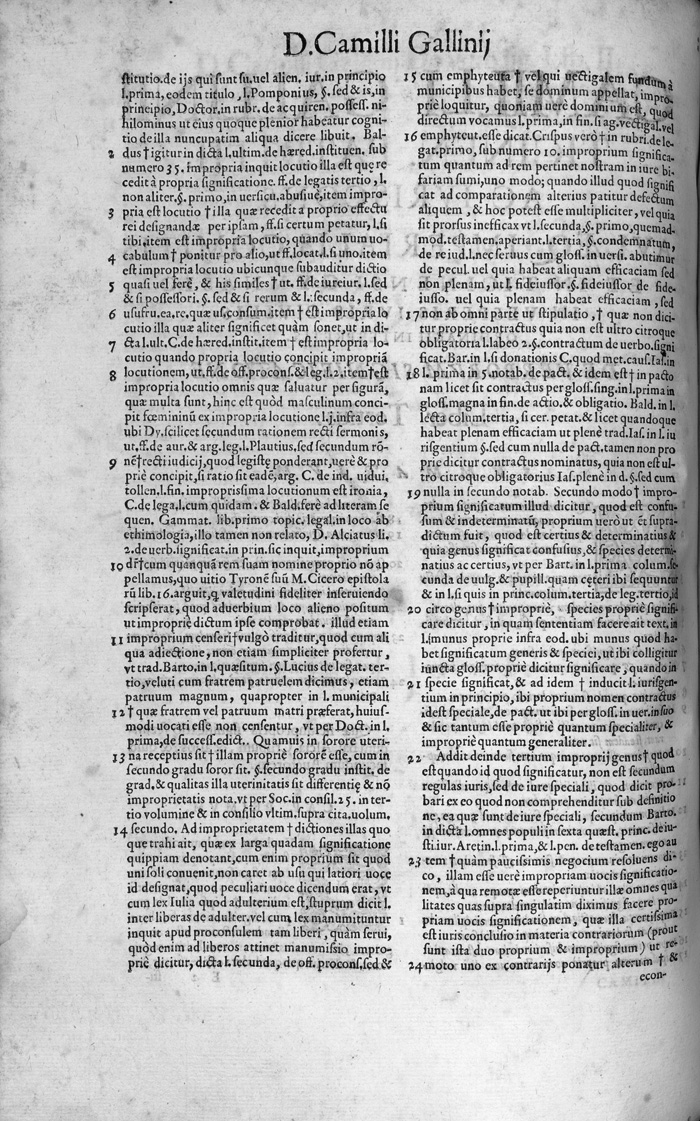 D. Camilli Gallinij
stitutio.de ijs qui sunt su.uel alien. iur.in principio
l.prima, eodem titulo, l. Pomponius, §. sed & is, in
principio, Doctor. in rubr. de acquiren. possess. ni-
hilominus ut eius quoque plenior habeatur cognitio
tio de illa nuncupatim aliqua dicere libuit. Bal-
2 dus † igitur in dicta l.ultim.de hæred.instituen. sub
numero 35. Impropria inquit locutio illa est quę re
cedit à propria significatione. ff. de legatis tertio, l.
non aliter. §. primo, in uersicu. abusiuè, item impro-
3 pria est locutio † illa quæ recedit a proprio effectu
rei designandæ per ipsam, ff. si certum petatur, l. si
tibi, item est impropria locutio, quando unum uo-
4 cabulum † ponitur pro alio, ut ff. locat. l. si uno. item
est impropria locutio ubicunque subauditur dictio
5 quasi uel ferè, & his similes † ut. ff. de iureiur. l. sed
& si possessori. §. sed & si rerum & l. secunda, ff. de
6 usufru. ea. re. quæ us. consum. item † est impropria lo
cutio illa quæ aliter significet quàm sonet, ut in di-
7 cta l. ult. C. de hæred. instit. item † est impropria lo-
cutio quando propria locutio concipit impropriā
8 locutionem, ut. ff. de off. procons. & leg. l. 2, item † est
impropria locutio omnis quæ saluatur per figurā,
quæ multa sunt, hinc est quòd masculinum conci-
pit fœmininū ex impropria locutione l. j. infra eod.
ubi Dy. scilicet secundum rationem recti sermonis,
ut. ff. de aur. & arg. leg. l. Plautius, sed secundum rō-
9 nē † recti iudicij, quod legistę ponderant, uerè & pro
priè concipit, si ratio sit eadē, arg. C. de ind. uidui.
tollen. l. fin. improprissima locutionum est ironia,
C. de lega. l. cum quidam. & Bald. ferè ad literam se
quen. Gammat. lib. primo topic. legal. in loco ab
ethimologia, illo tamen non relato, D. Alciatus li
2. de uerb. significat. in prin. sic inquit, improprium
10 dr̄ † cum quanquā rem suam nomine proprio nō ap
pellamus, quo uitio Tyronē suū M. Cicero epistola
rū lib. 16. arguit, q̨ valetudini fideliter inseruiendo
scripserat, quod aduerbium loco alieno positum
ut impropriè dictum ipse comprobat. illud etiam
11 improprium censeri † vulgò traditur, quod cum ali
qua adiectione, non etiam simpliciter profertur,
vt trad. Barto. in l. quæsitum. §. Lucius de legat. ter-
tio, veluti cum fratrem patruelem dicimus, etiam
patruum magnum, quapropter in l. municipali
12 † quæ fratrem vel patruum matri præferat, huius-
modi uocati esse non censentur, vt per Doct. in l.
prima, de success. edict.. Quamuis in sorore uteri-
13 na receptius sit † illam propriè sororē esse, cum in
secundo gradu soror sit. §. secundo gradu instit. de
grad. & qualitas illa uterinitatis sit differentię & nō
improprietatis nota. vt per Soc. in consil. 25. in ter-
tio volumine & in consilio vltim. supra cita. uolum.
14 secundo. Ad improprietatem † dictiones illas quo
que trahi ait, quæ ex larga quadam significatione
quippiam denotant, cum enim proprium sit quod
uni soli conuenit, non caret ab usu qui latiori uoce
id designat, quod peculiari uoce dicendum erat, vt
cum lex Iulia quod adulterium est, stuprum dicit l.
inter liberas de adulter. vel cum lex manumituntur
inquit apud proconsulem tam liberi, quàm serui,
quòd enim ad liberos attinet manumissio impro-
priè dicitur, dicta l. secunda, de off. procons. sed &
15 cum emphyteuta † vel qui uectigalem fundum à
municipibus habet, se dominum appellat, impro-
priè loquitur, quoniam uerè dominium est, quod
directum vocamus l. prima, in fin. si ag. vectigal. vel
16 emphyteut. esse dicat. Crispus verò † in rubri. de le-
gat. primo, sub numero 10. improprium significa-
tum quantum ad rem pertinet nostram in iure bi-
fariam sumi, uno modo; quando illud quod signifi
cat ad comparationem alterius patitur defectum
aliquem, & hoc potest esse multipliciter, vel quia
sit prorsus inefficax vt l. secunda, §. primo, quemad-
mod. testamen. aperiant. l. tertia, §. condemnatum,
de re iud. l. nec seruus cum gloss. in uersi. abutimur
de pecul. uel quia habeat aliquam efficaciam sed
non plenam, ut l. fideiussor. §. fideiussor de fide-
iusso. uel quia plenam habeat efficaciam, sed
17 non ab omni parte ut stipulatio, † quæ non dici-
tur proprie contractus quia non est ultro citroque
obligatoria l. labeo 2. §. contractum de uerbo. signi
ficat. Bar. in l. si donationis C. quod met. caus. Ias. in
18 l. prima in 5. notab. de pact. & idem est † in pacto
nam licet sit contractus per gloss. sing. in l. prima in
gloss. magna in fin. de actio. & obligatio. Bald. in l.
lecta colum. tertia, si cer. petat. & licet quandoque
habeat plenam efficaciam ut plenè trad. Ias. in l. iu
risgentium §. sed cum nulla de pact. tamen non pro
prie dicitur contractus nominatus, quia non est ul-
tro citroque obligatorius Ias. plenè in d. §. sed cum
19 nulla in secundo notab. Secundo modo † impro-
prium significatum illud dicitur, quod est confu-
sum & indeterminatū, proprium uerò ut ēt supra-
dictum fuit, quod est certius & determinatius &
quia genus significat confusius, & species determi-
natius ac certius, vt per Bart. in l. prima colum. se-
cunda de uulg. & pupill. quam cęteri ibi sequuntur
& in l. si quis in princ. colum. tertia, de leg. tertio, id
20 circo genus † impropriè, species propriè signifi-
care dicitur, in quam sententiam facere ait text. in
l. munus proprie infra eod. ubi munus quod ha-
bet significatum generis & speciei, ut ibi colligitur
iuncta gloss. propriè dicitur significare, quando in
21 specie significat, & ad idem † inducit l. iurisgen-
tium in principio, ibi proprium nomen contractus
idest speciale, de pact. ut ibi per gloss. in uer. in suo
& sic tantum esse propriè quantum specialiter, &
impropriè quantum generaliter.
22 Addit deinde tertium improprij genus † quod
est quando id quod significatur, non est secundum
regulas iuris, sed de iure speciali, quod dicit pro-
bari ex eo quod non comprehenditur sub definitio
ne, ea quæ sunt de iure speciali, secundum Barto.
in dicta l. omnes populi in sexta quæst. princ. de iu-
sti. iur. Aretin. l. prima, & l. pen. de testamen. ego au
23 tem † quàm paucissimis negocium resoluens di-
co, illam esse uerè impropriam uocis significatio-
nem, à qua remotæ esse reperiuntur illæ omnes qua
litates quas supra singulatim diximus facere pro-
priam uocis significationem, quæ illa certissima
est iuris conclusio in materia contrariorum (prout
sunt ista duo proprium & improprium) ut re-
24 moto uno ex contrarijs ponatur alterum † &
econ-